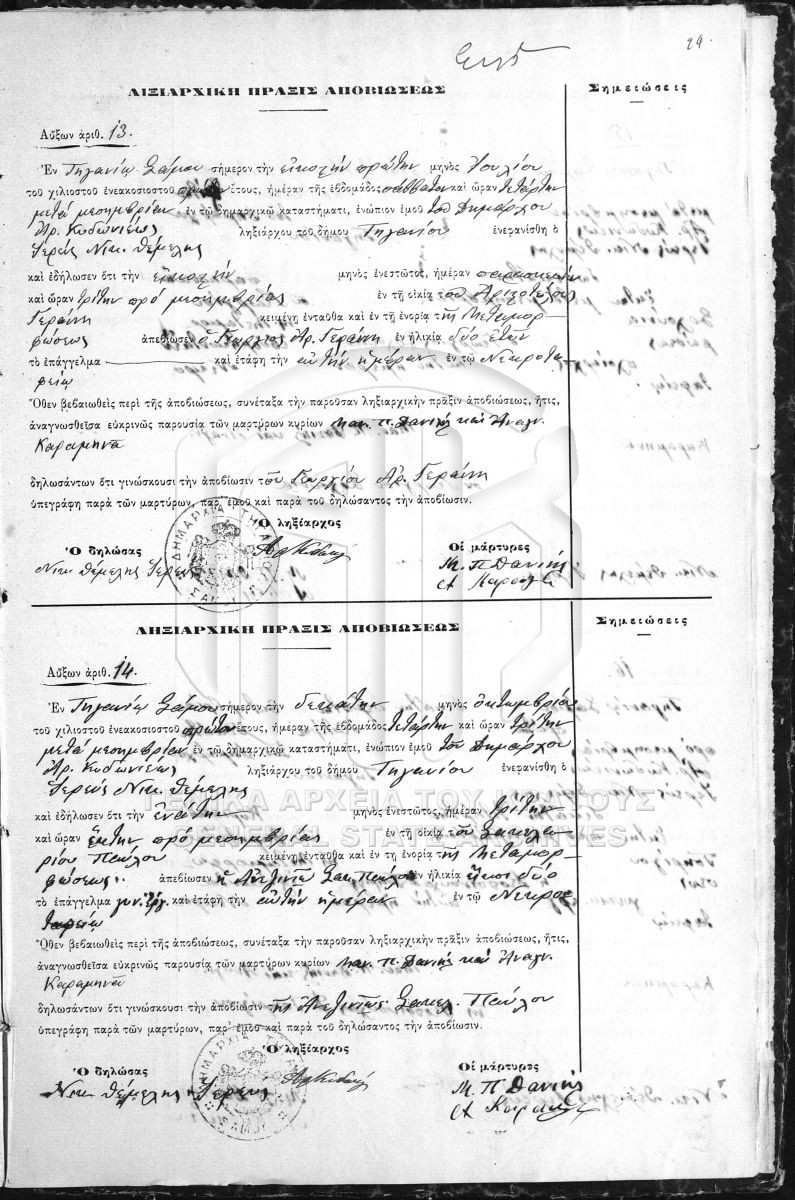 24.
ΛΙΞΙΑΡΧΙΚΗ ΠΡΑΞΙΣ ΑΠΟΒΙΩΣΕΩΣ
Σημειώσεις
Αὔξων ἀριθ. 13.
Ἐν Τηγανίῳ Σάμου σήμερον τὴν εἰκοστὴν πρώτην μηνὸς Ἰουλίου
τοῦ χιλιοστοῦ ἐνεακοσιοστοῦ πρώτου ἔτους, ἡμέραν τῆς ἑβδομάδος σάββατον καὶ ὥραν τετάρτην
μετὰ μεσημβρίαν ἐν τῷ δημαρχικῷ καταστήματι, ἐνώπιον ἐμοῦ τοῦ Δημάρχου
Ἀρ. Κυδωνιέως ληξιάρχου τοῦ δήμου Τηγανίου ἐνεφανίσθη ὁ
Ἱερεὺς Νικ. Θέμελης
καὶ ἐδήλωσεν ὅτι τὴν εἰκοστὴν μηνὸς ἐνεστῶτος, ἡμέραν παρασκευὴν
καὶ ὥραν τρίτην πρὸ μεσημβρίας ἐν τῇ οἰκίᾳ τοῦ Ἀριστοτέλους
Γεράνη κειμένῃ ἐνταῦθα καὶ ἐν τῇ ἐνορίᾳ τῆς Μεταμορ-
φώσεως ἀπεβίωσεν ὁ Γεώργιος Ἀρ. Γεράνη ἐν ἡλικίᾳ δύο ἐτῶν
τὸ ἐπάγγελμα καὶ ἐτάφη τὴν αὐτὴν ἡμέραν ἐν τῷ Νεκροτα-
φείῳ
Ὅθεν βεβαιωθεὶς περὶ τῆς ἀποβιώσεως, συνέταξα τὴν παροῦσαν ληξιαρχικὴν πρᾶξιν ἀποβιώσεως, ἥτις,
ἀναγνωσθεῖσα εὐκρινῶς παρουσίᾳ τῶν μαρτύρων κυρίων Μαν. Π. Δανιὴλ καὶ Ἀναγν.
Καραμηνᾶ
δηλωσάντων ὅτι γινώσκουσι τὴν ἀποβίωσιν τοῦ Γεωργίου Ἀρ. Γεράνη
ὑπεγράφη παρὰ τῶν μαρτύρων, παρ' ἐμοῦ καὶ παρὰ τοῦ δηλώσαντος τὴν ἀποβίωσιν.
Ὁ ληξίαρχος
Ὁ δηλώσας
Οἱ μάρτυρες
Νικ. Θέμελης Ἱερεὺς
Μ. Π. Δανιὴλ
ΛΗΞΙΑΡΧΙΚΗ ΠΡΑΞΙΣ ΑΠΟΒΙΩΣΕΩΣ
Σημειώσεις
Αὔξων ἀριθ. 14.
Ἐν Τηγανίῳ Σάμου σήμερον τὴν δεκάτην μηνὸς Ὀκτωμβρίου
τοῦ χιλιοστοῦ ἐνεακοσιοστοῦ πρώτου ἔτους, ἡμέραν τῆς ἑβδομάδος τετάρτην καὶ ὥραν τρίτην
μετὰ μεσημβρίαν ἐν τῷ δημαρχικῷ καταστήματι, ἐνώπιον ἐμοῦ τοῦ Δημάρχου
Ἀρ. Κυδωνιέως ληξιάρχου τοῦ δήμου Τηγανίου ἐνεφανίσθη ὁ
Ἱερεὺς Νικ. Θέμελης
ΓΕΝΙΚΑ ΑΡΧΕΙΑ ΤΟΥ ΚΡΑΤΟΥΣ
καὶ ἐδήλωσεν ὅτι τὴν ἐνάτην μηνὸς ἐνεστῶτος, ἡμέραν τρίτην
GENERAL STATE ARCHIVES
καὶ ὥραν ἕκτην πρὸ μεσημβρίας ἐν τῇ οἰκίᾳ τοῦ Σακελα-
ρίου Παύλου κειμένῃ ἐνταῦθα καὶ ἐν τῇ ἐνορίᾳ τῆς Μεταμορ-
φώσεως ἀπεβίωσεν ἡ Ἀνεζινιῶ Σακ. Παύλου ἐν ἡλικίᾳ εἴκοσι δύο
τὸ ἐπάγγελμα καὶ ἐτάφη τὴν αὐτὴν ἡμέραν ἐν τῷ Νεκρο-
ταφείῳ
Ὅθεν βεβαιωθεὶς περὶ τῆς ἀποβιώσεως, συνέταξα τὴν παροῦσαν ληξιαρχικὴν πρᾶξιν ἀποβιώσεως, ἥτις,
ἀναγνωσθεῖσα εὐκρινῶς παρουσίᾳ τῶν μαρτύρων κυρίων Μαν. Π. Δανιὴλ καὶ Ἀναγν.
Καραμηνᾶ
δηλωσάντων ὅτι γινώσκουσι τὴν ἀποβίωσιν τῆς Ἀνεζινιῶς Σακελ. Παύλου
ὑπεγράφη παρὰ τῶν μαρτύρων, παρ' ἐμοῦ καὶ παρὰ τοῦ δηλώσαντος τὴν ἀποβίωσιν.
Ὁ ληξίαρχος
Ὁ δηλώσας
Οἱ μάρτυρες
Νικ. Θέμελης Ἱερεὺς
Μ. Π. Δανιὴλ